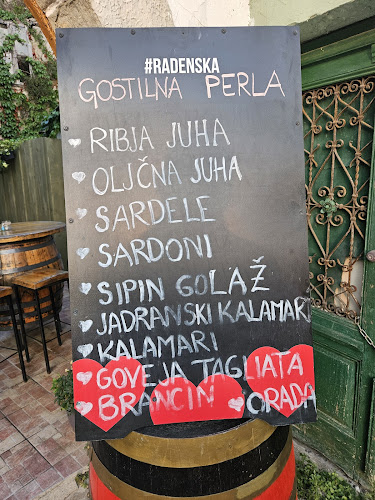 #RADENSKA
GOSTILNA PERLA
RIBJA JUHA
OLJČNA JUHA
SARDELE
SARDONI
SIPIN GOLAŽ
JADRANSKI KALAMARI
KALAMARI
GOVEJA TAGLIATA
BRANCIN ORADA